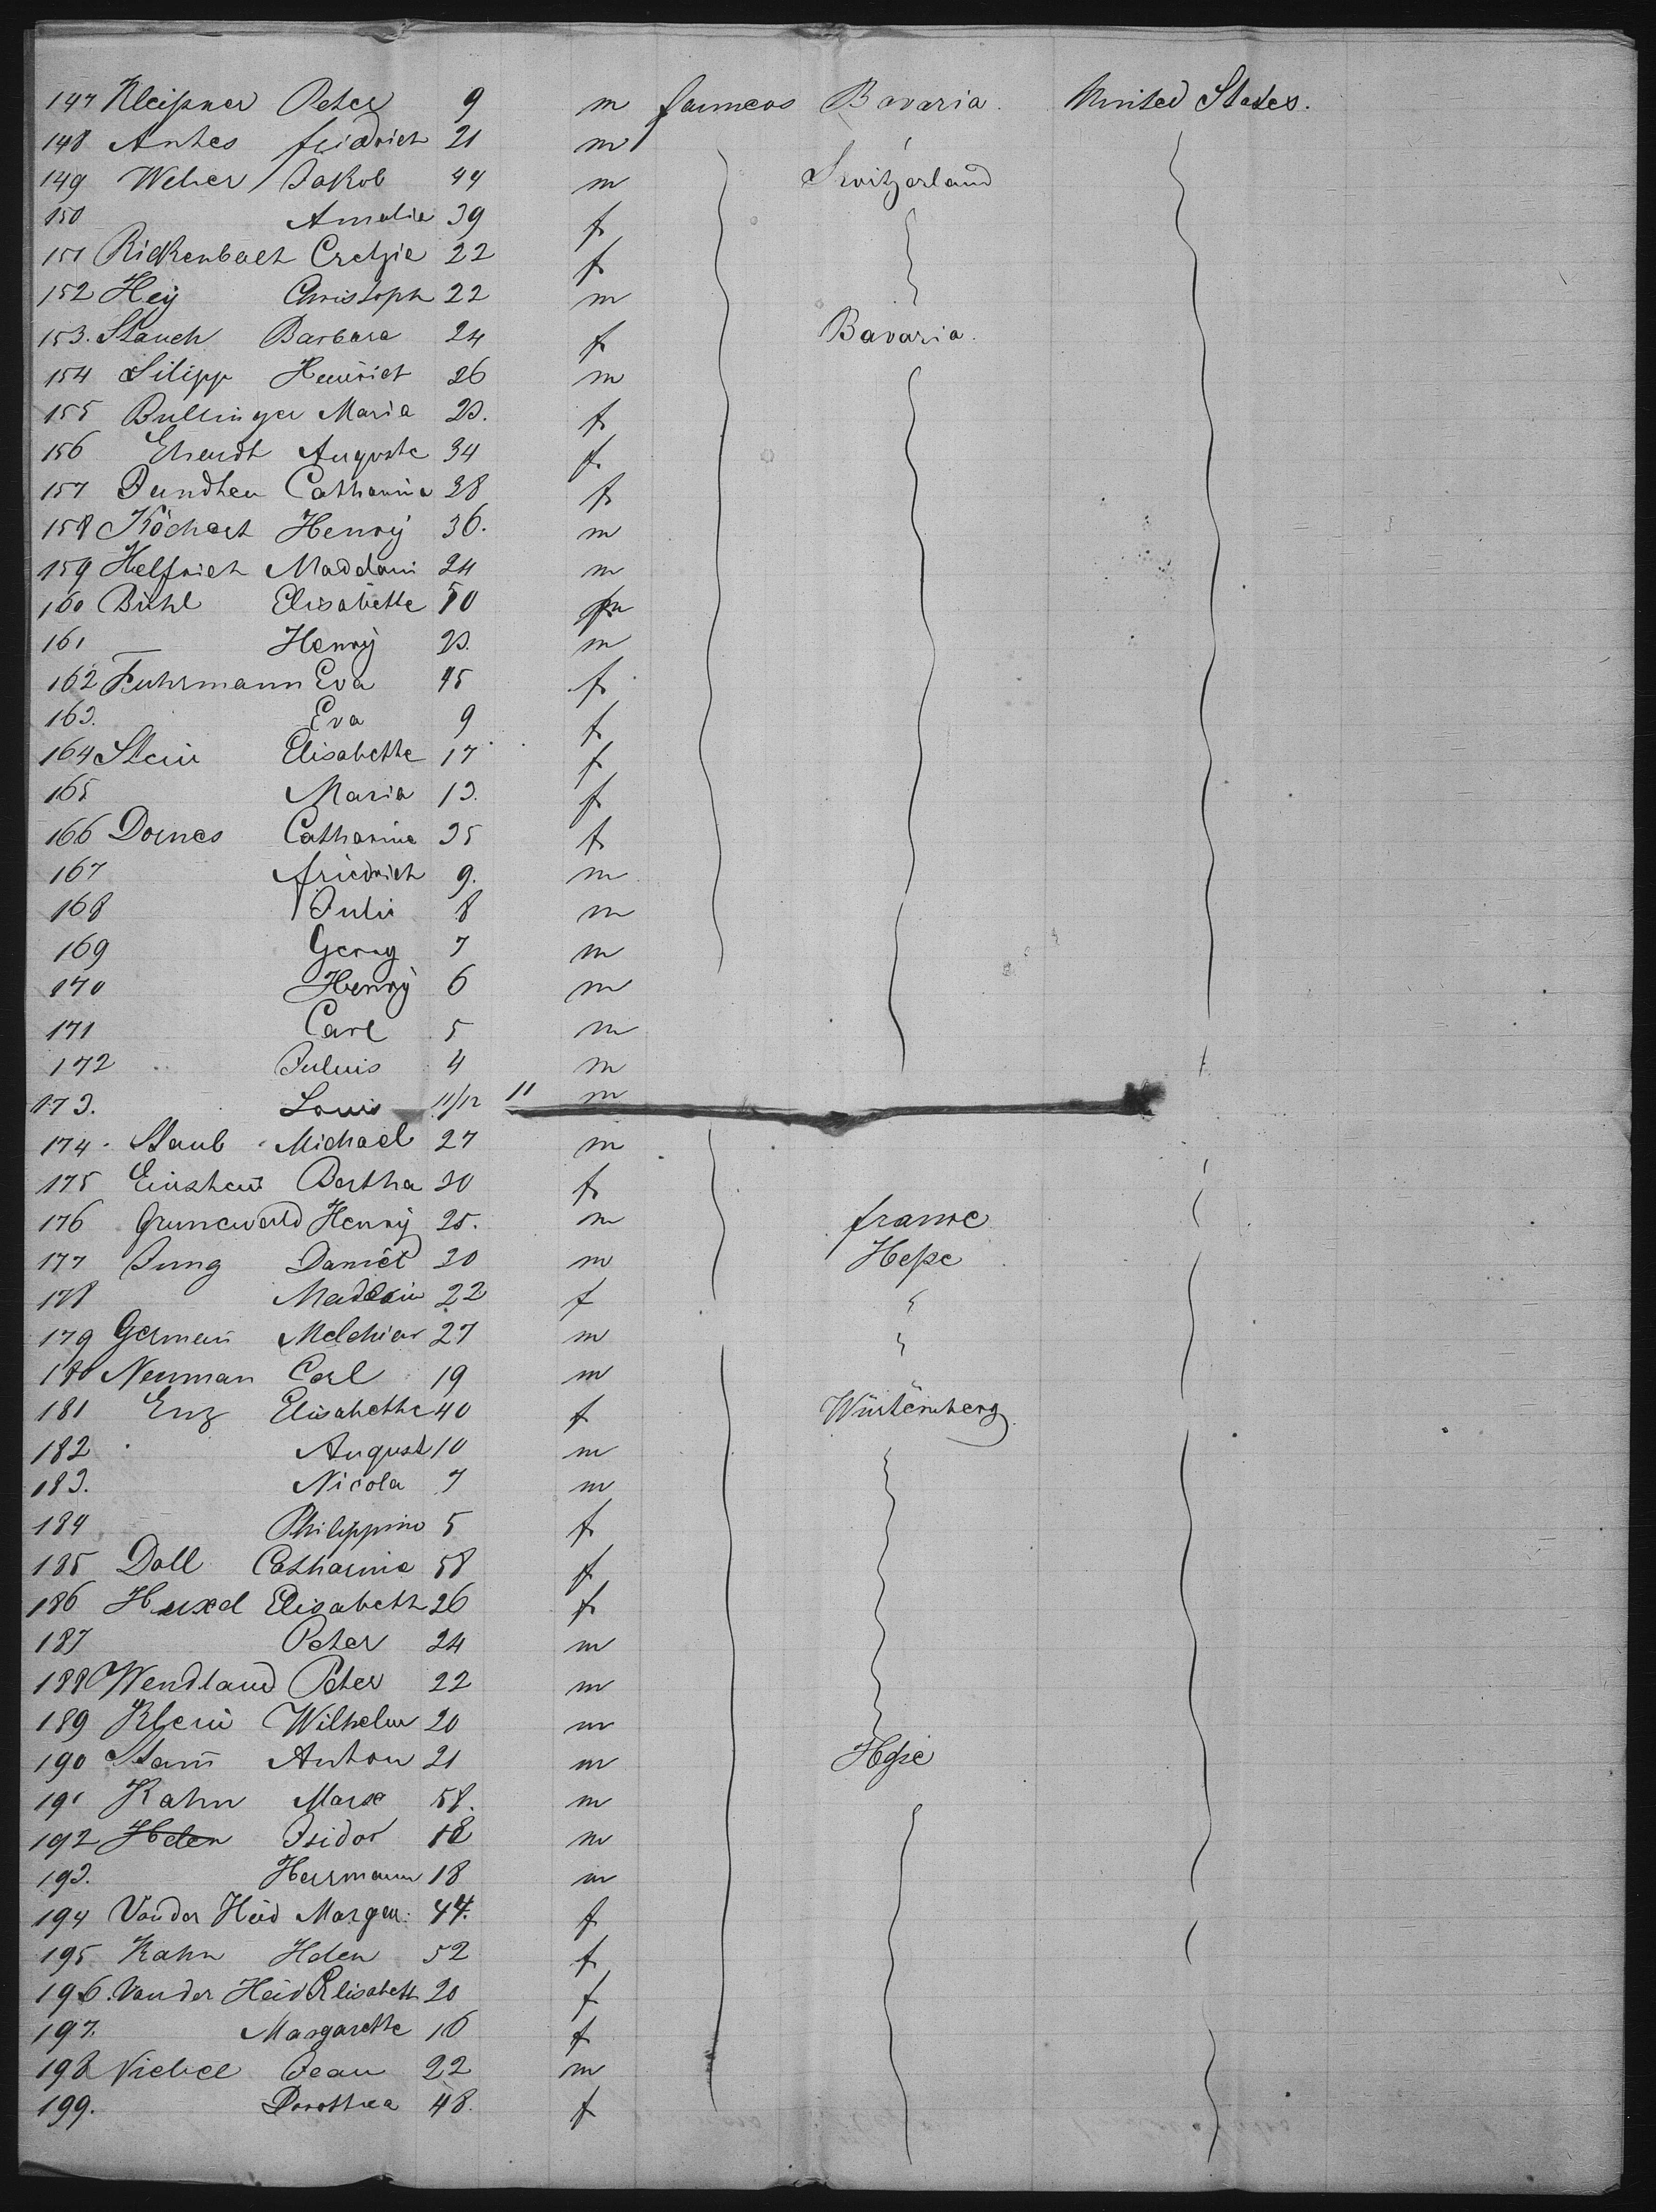 147 Kleißner Peter 9 m farmers Bavaria. United States.
148 Anhes friedrich 21 m
149 Weber Jakob 44 m Switzerland
150 Amalie 39 f
151 Rickenbach 22 f
152 Hey Christoph 22 m
153. Stauch Barbara 24 f Bavaria.
154 Silipp Heinrich 26 m
155 Bullinger Maria 23. f
156 Ehrardt Auguste 34 f
157 Catharina 38 f
158 Köchert Henry 36. m
159 Helfrich 24 m
160 Bühl Elisabette 50
161 Henry 23. m
162 Fuhrmann Eva 45 f
163. Eva 9 f
164 Stein Elisabethe 17 f
165 Maria 13. f
166 Dornes Catharine 35 f
167 friedrich 9. m
168 Juli 8 m
169 Georg 7 m
170 Henry 6 m
171 Carl 5 m
172 Julius 4 m
173. Louis 11/12 11 m
174. Staub Michael 27 m
175 Bertha 30 f
176 Grunewald Henry 25. m france
177 Jung Daniel 30 m Heße
178 22 f "
179 German Melchior 27 m "
180 Neuman Carl 19 m
181 Enz Elisabethe 40 f Würtemberg
182 August 10 m
183. Nicola 7 m
184 Philippine 5 f
185 Doll Catharine 58 f
186 Elisabeth 26 f
187 Peter 24 m
188 Wendland Peter 22 m
189 Klein Wilhelm 20 m
190 Stam̄ Anton 21 m Heße
191 Kahn Marx 58. m
192 Isidor 18 m
193. Herrmann 18 m
194 Vonder Heid Margar. 44. f
195 Kahn Helen 52 f
196. Vonder Heid Elisabeth 20 f
197. Margarethe 16 f
198 Niebel Jean 22 m
199. Dorothea 48. f